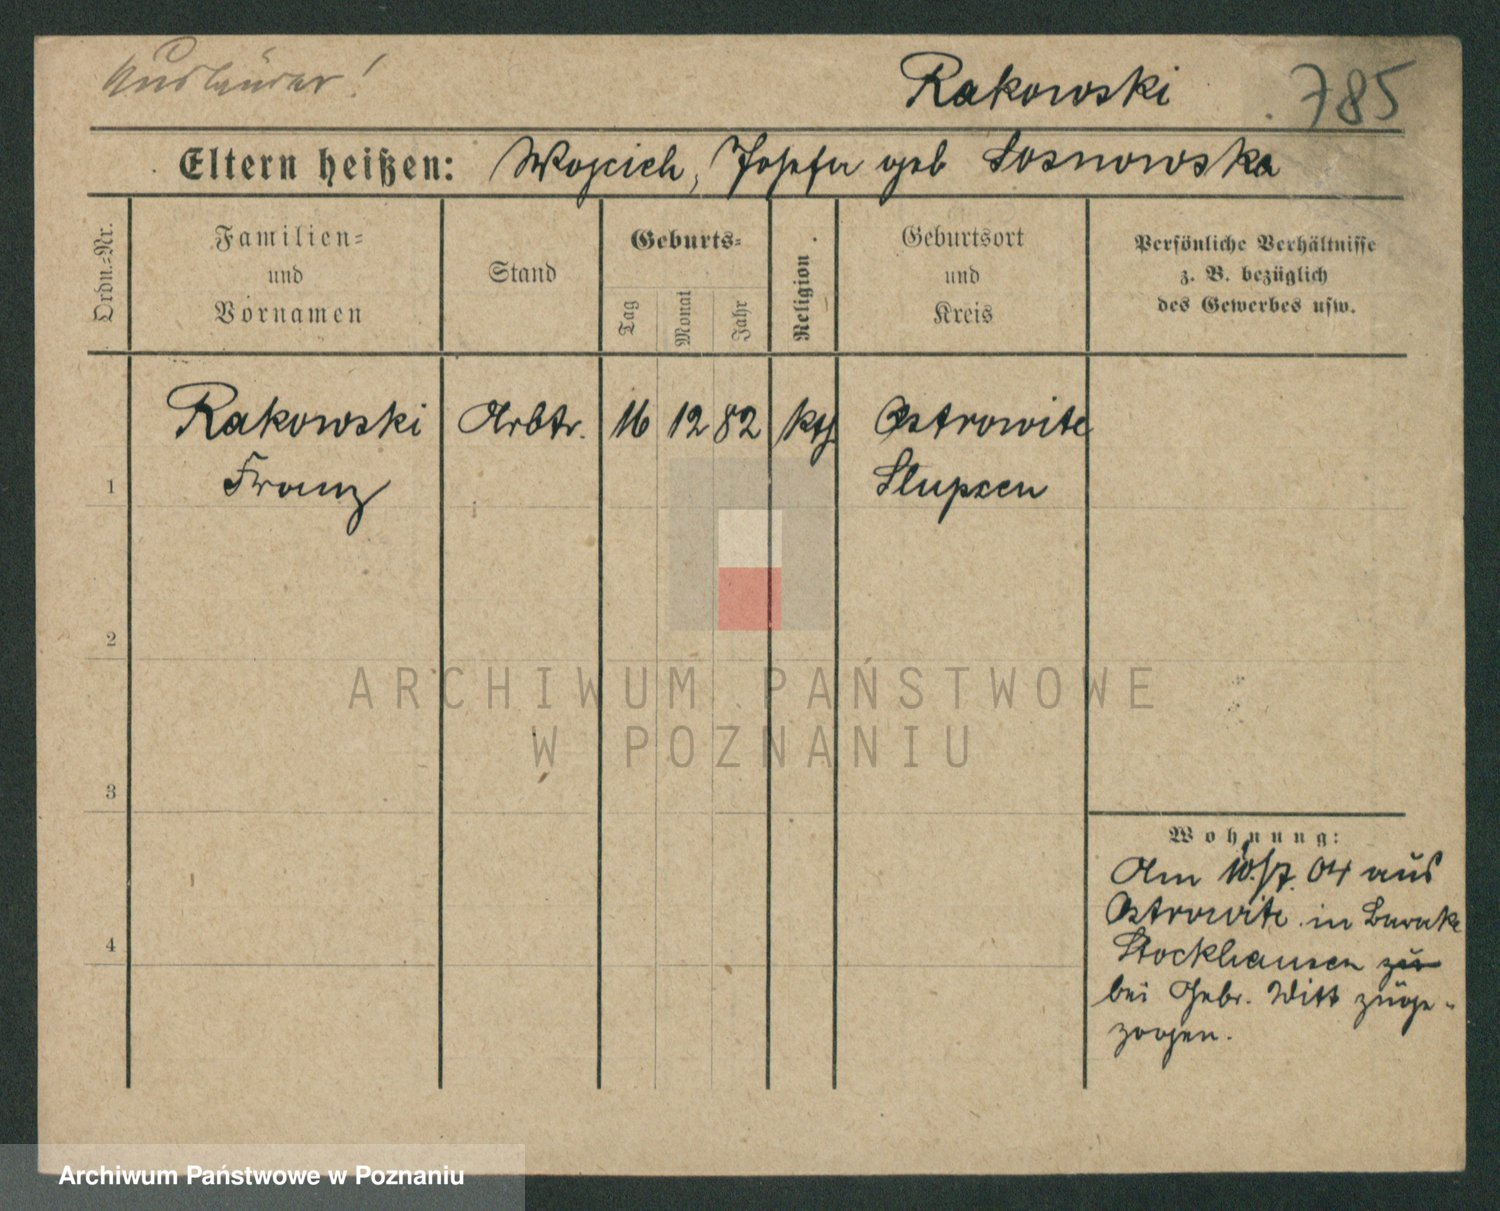 Ausländer!
Rakowski
785
Eltern heißen: Wojcich, Josefa geb Sosnowska
Ordn.-Nr.
Familien-
und
Vornamen
Stand
Geburts-
Tag
Monat
Jahr
Religion
Geburtsort
und
Kreis
Persönliche Verhältnisse
z. B. bezüglich
des Gewerbes usw.
1
Rakowski Arbtr. 16 12 82 kth Ostrowite
Franz Slupzen
2
3
4
Wohnung:
Am 10./7. 04 aus
Ostrowite in Barake
Stockhausen zu
bei Gebr. Witt zuge-
zogen.
ARCHIWUM PAŃSTWOWE
W POZNANIU
Archiwum Państwowe w Poznaniu